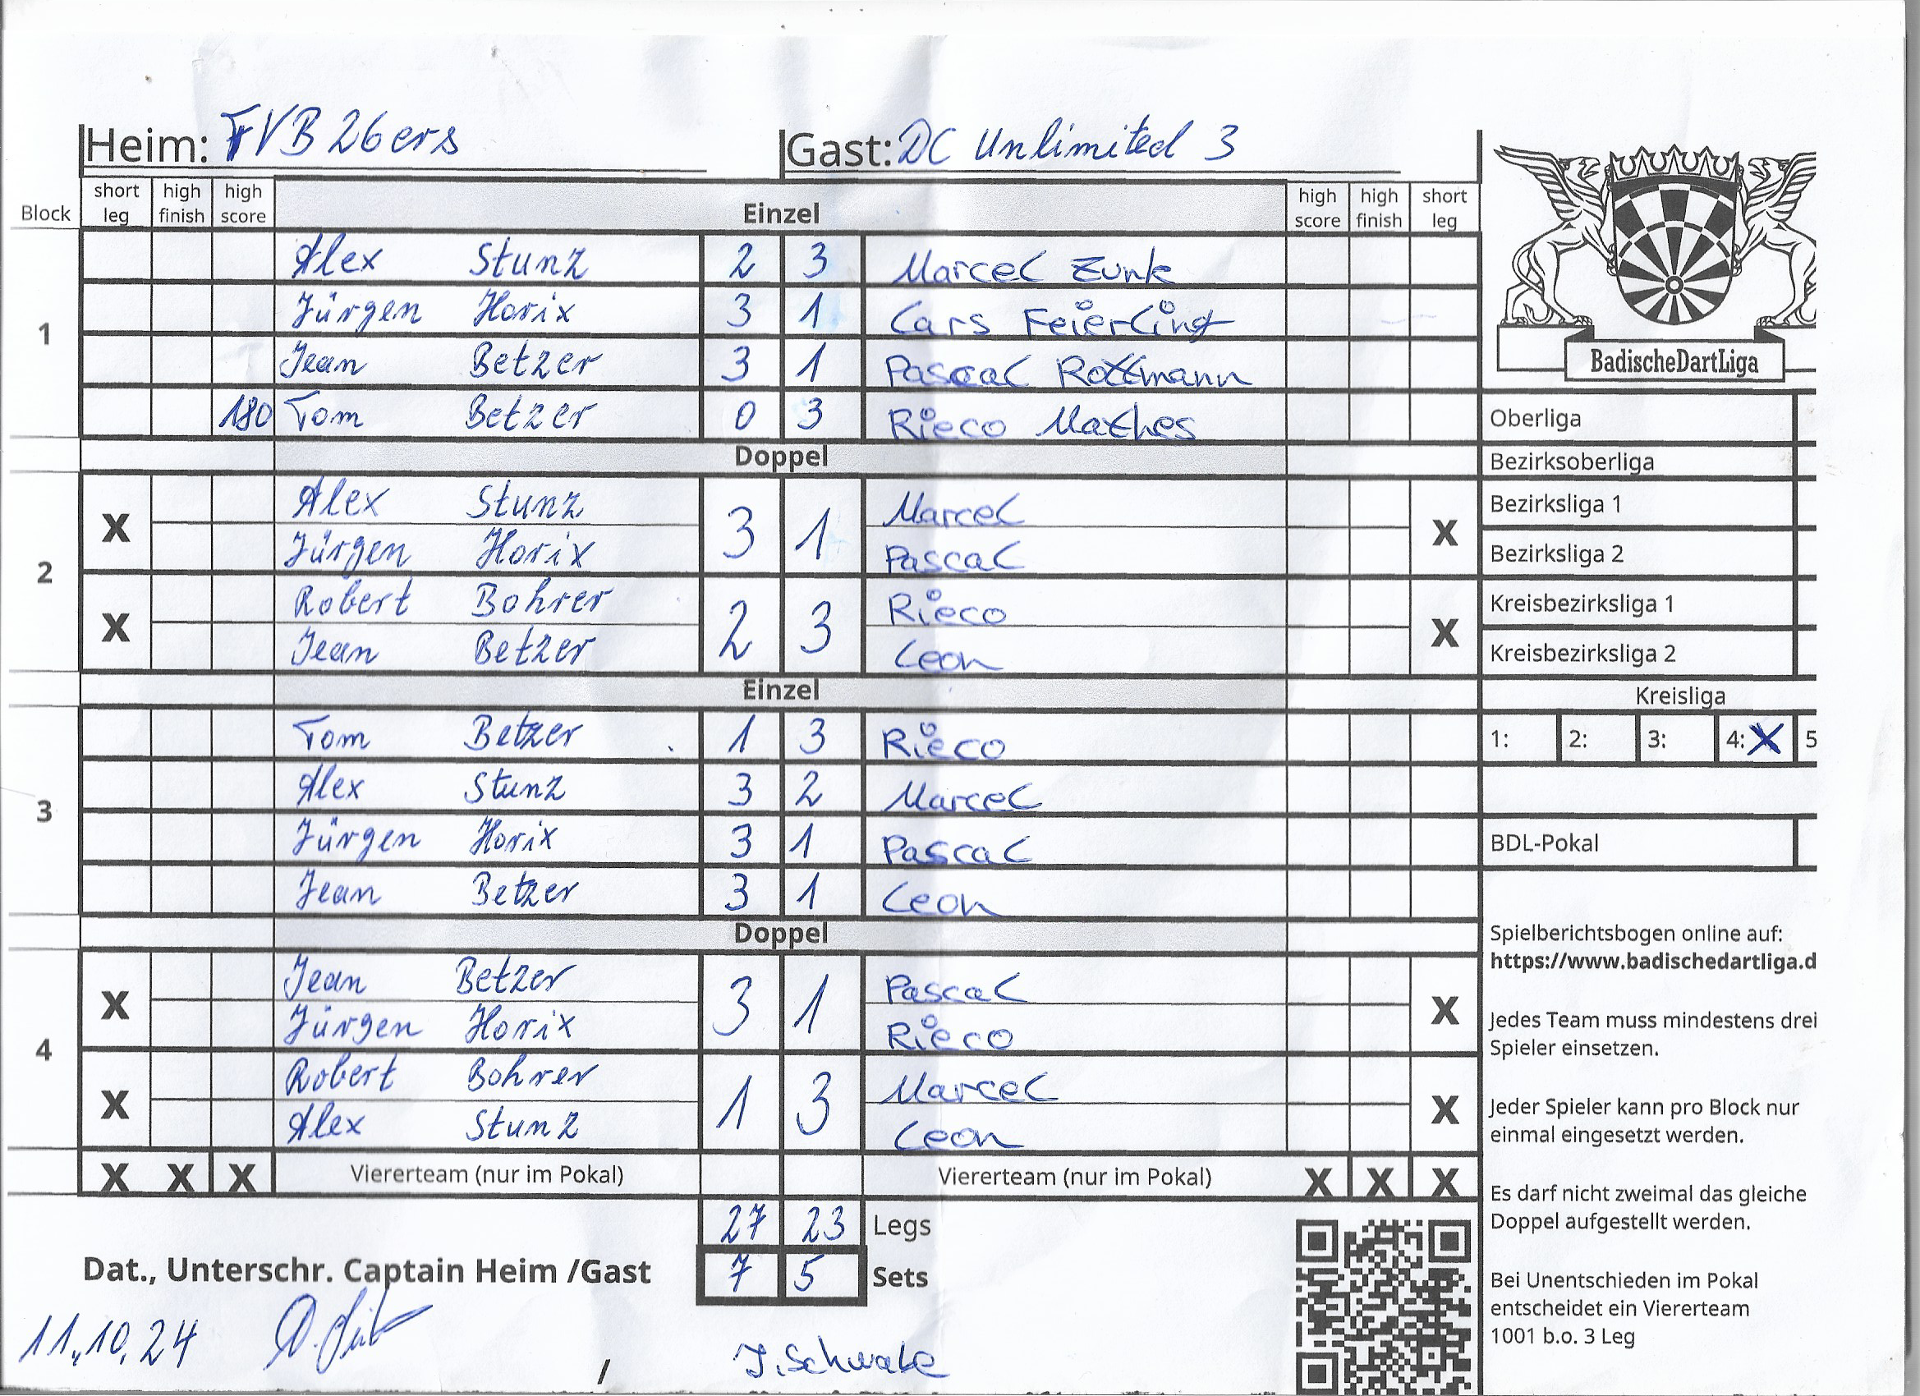 Heim: FVB 26ers Gast: DC Unlimited 3
Block short leg high finish high score Einzel high score high finish short leg
1
Alex Stunz 2 3 Marcel Zunk
Jürgen Horix 3 1 Lars Feierling
Jean Betzer 3 1 Pascal Rottmann
180 Tom Betzer 0 3 Rieco Mathes
Doppel
2
X Alex Stunz 3 1 Marcel X
Jürgen Horix Pascal
X Robert Bohrer 2 3 Rieco X
Jean Betzer Leon
Einzel
3
Tom Betzer 1 3 Rieco
Alex Stunz 3 2 Marcel
Jürgen Horix 3 1 Pascal
Jean Betzer 3 1 Leon
Doppel
4
X Jean Betzer 3 1 Pascal X
Jürgen Horix Rieco
X Robert Bohrer 1 3 Marcel X
Alex Stunz Leon
X X X Viererteam (nur im Pokal) Viererteam (nur im Pokal) X X X
27 23 Legs
7 5 Sets
Dat., Unterschr. Captain Heim /Gast
11.10.24 / J. Schwale
BadischeDartLiga
Oberliga
Bezirksoberliga
Bezirksliga 1
Bezirksliga 2
Kreisbezirksliga 1
Kreisbezirksliga 2
Kreisliga
1: 2: 3: 4: X 5
BDL-Pokal
Spielberichtsbogen online auf:
https://www.badischedartliga.d
Jedes Team muss mindestens drei
Spieler einsetzen.
Jeder Spieler kann pro Block nur
einmal eingesetzt werden.
Es darf nicht zweimal das gleiche
Doppel aufgestellt werden.
Bei Unentschieden im Pokal
entscheidet ein Viererteam
1001 b.o. 3 Leg